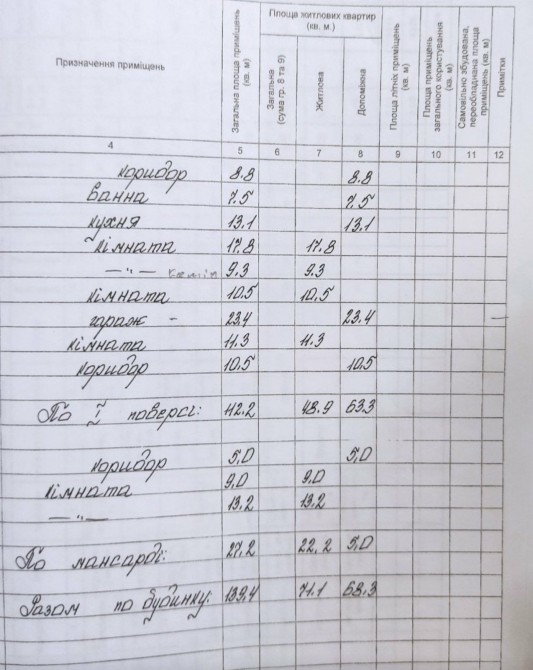 Призначення приміщень
Загальна площа приміщень (кв. м)
Площа житлових квартир (кв. м.)
Загальна (сума гр. 8 та 9)
Житлова
Допоміжна
Площа літніх приміщень (кв. м)
Площа приміщень загального користування (кв. м)
Самовільно збудована, переобладнана площа приміщень (кв. м)
Примітки
4 5 6 7 8 9 10 11 12
коридор 8.8 8.8
Ванна 7.5 7.5
кухня 13.1 13.1
кімната 17.8 17.8
—"— 9.3 9.3
кімната 10.5 10.5
гараж - 23.4 23.4 —
кімната 11.3 11.3
коридор 10.5 10.5
По I поверсі: 112.2 48.9 63.3
коридор 5,0 5,0
кімната 9,0 9,0
—"— 13.2 13.2
По мансарді: 27.2 22,2 5,0
Разом по будинку: 139,4 71.1 68,3